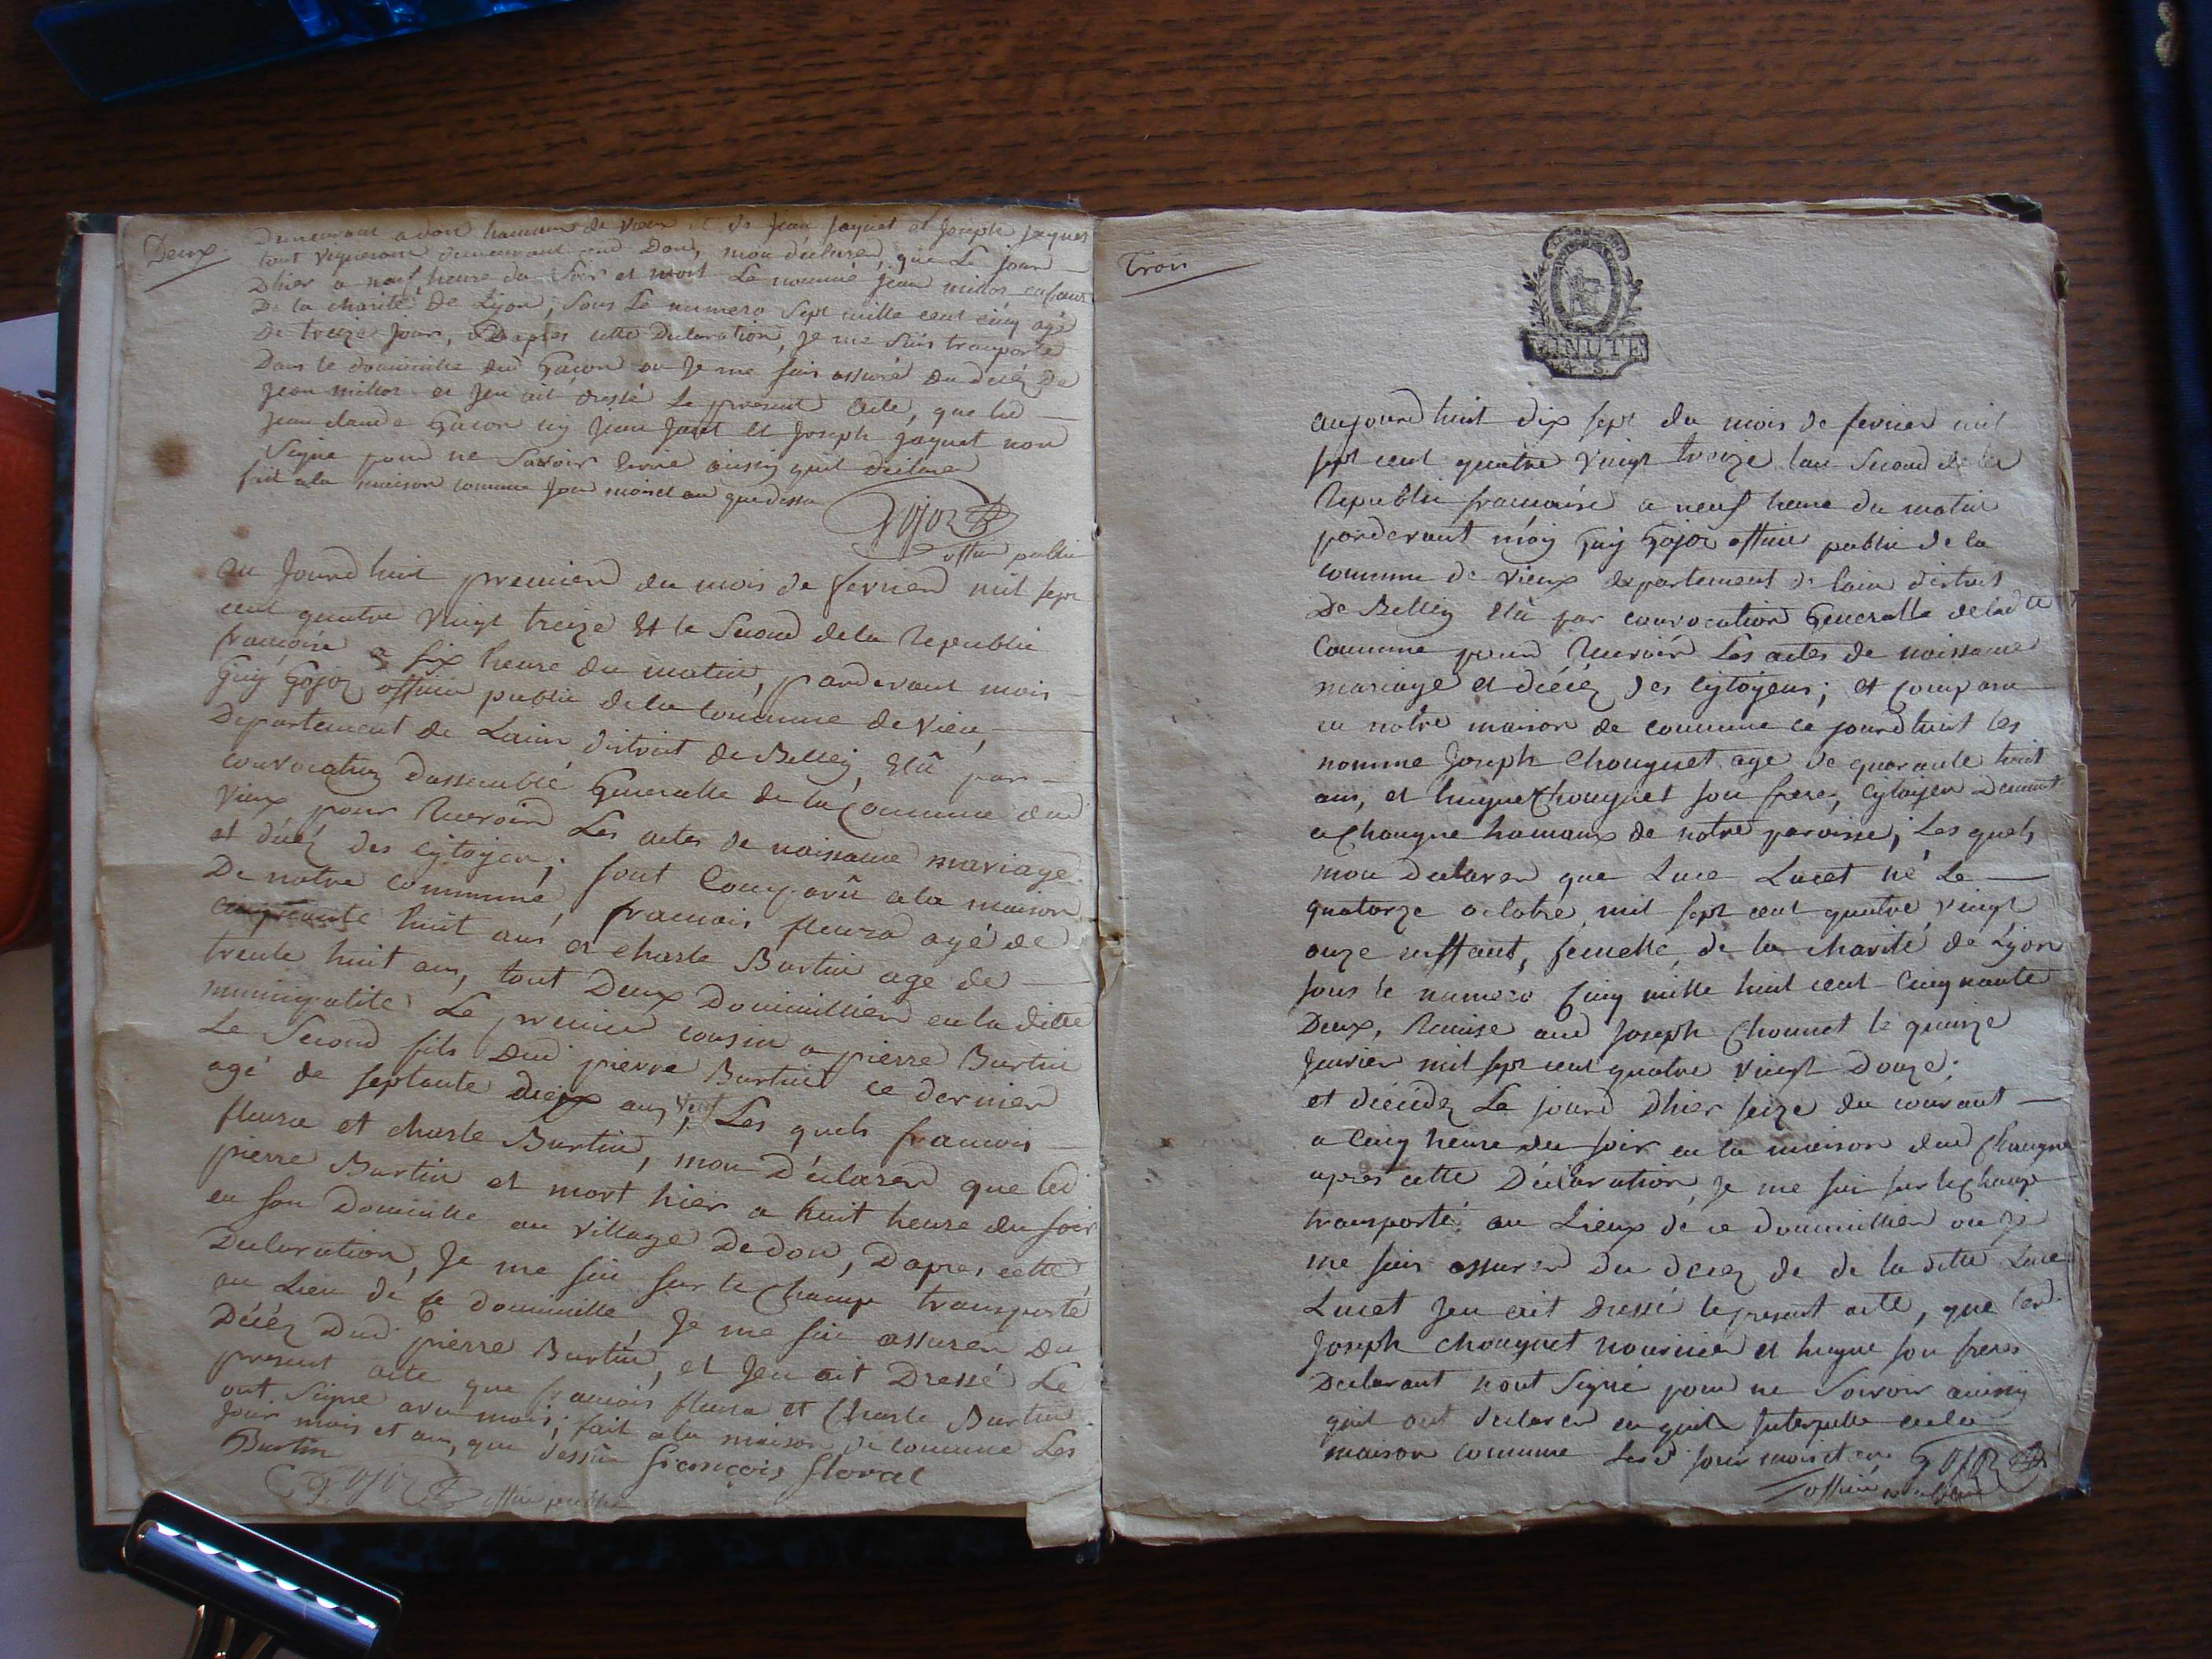 Deux
Demeurant a don hameau de vieux et de Jean Jaquet et Joseph Jaquet
tout vigneron demeurant aud Don, mon déclaré, que Le Jour
Dhier a neuf heure du soir et mort Le nommé Jean millos enfant
De la charité de Lyon, sous Le numero sept mille cent cinq agé
De treize Jour, Dapres cette Declaration, Je me suis transporté
Dans le domicille dud Gacon ou Je me suis assuré du decéz De
Jean millos et Jen ait dressé Le present acte, que led
Jean claude Gacon ny Jean Jaquet et Joseph Jaquet non
Signe pour ne Savoir Ecrire ainsy quil declarer
fait a la maison commune Jour mois et an que dessu
Gojoz
officié public
au Jourdhuit premier du mois de fevrier mil sept
cent quatre vingt treize Et le Second de la Republic
francoise a six heure du matin, pardevant mois
Guy Gojoz officié public de la commune de vieu,
Departement de Lain district de Belley, Elû par
convocation dassemblé Generalle de la Commune dud
vieux pour Recevoir Les actes de naissance mariage
et décéz des cytoyen; sont Comparû a la maison
De notre commune, francois fleura agé de
huit ans et charle Burtin age de
trente huit ans, tout Deux Domicillier en la ditte
municipalité Le premier cousin a pierre Burtin
Le Second fils Dud pierre Burtin ce dernier
agé de septante deux ans, Les quels francois
fleura et charle Burtin, mon Déclarer que led
pierre Burtin et mort hier a huit heure du soir
en son Domicille au village De don, Dapres cette
Declaration, Je me sui sur le Champ transporté
au Lieu de ce domicille, Je me sui assurer du
Décéz Dud pierre Burtin, et Jen ait Dressé Le
present acte que francois fleura et Charle Burtin
ont Signe avec mois; fait a la maison de commune Les
Jour mois et an, que dessûs françois floral
Burtin
Gojoz officié public
Trois
MINUTE
4 S.
aujourdhuit dix sept du mois de fevrier mil
sept cent quatre vingt treize lan Second de la
Republic francaise a neuf heure du matin
pardevant moy Guy Gojoz officié public de la
commune de vieux departement de lain district
De Belley Elû par convocation Generalle de ladtte
Commune pour Recevoir Les actes de naissance
mariage et décéz des Cytoyens; et comparu
en notre maison de commune ce jourdhuit les
nomme Joseph Chouquet age de quarante huit
ans, et hugue Chouquet son frere, Cytoyen Demeut
a Chougne hameaux de notre paroisse; Les quels
mon declarer que Luce Lucet né Le
quatorze octobre mil sept cent quatre vingt
onze enffant, femelle, de la charité de Lyon
sous le numero Cinq mille huit cent Cinquante
Deux, Remise aud Joseph Chounet le quinze
Janvier mil sept cent quatre vingt Douze;
et décédez Le jourd Dhier seize du courant
a Cinq heure du soir en la maison dud Chougne
apres cette Déclaration, Je me sui sur le Champ
transporté au Lieux de ce domicillier ou Je
me suis assurer du decez de de la ditte Luce
Lucet Jen ait Dressé le present acte, que led
Joseph Chouquet nouricier et hugue son freres
Declarant nont Signé pour ne Savoir ainsy
quil ont declarer en quil Interpelle en la
maison commune Lesd jour mois et an Gojoz
officié public